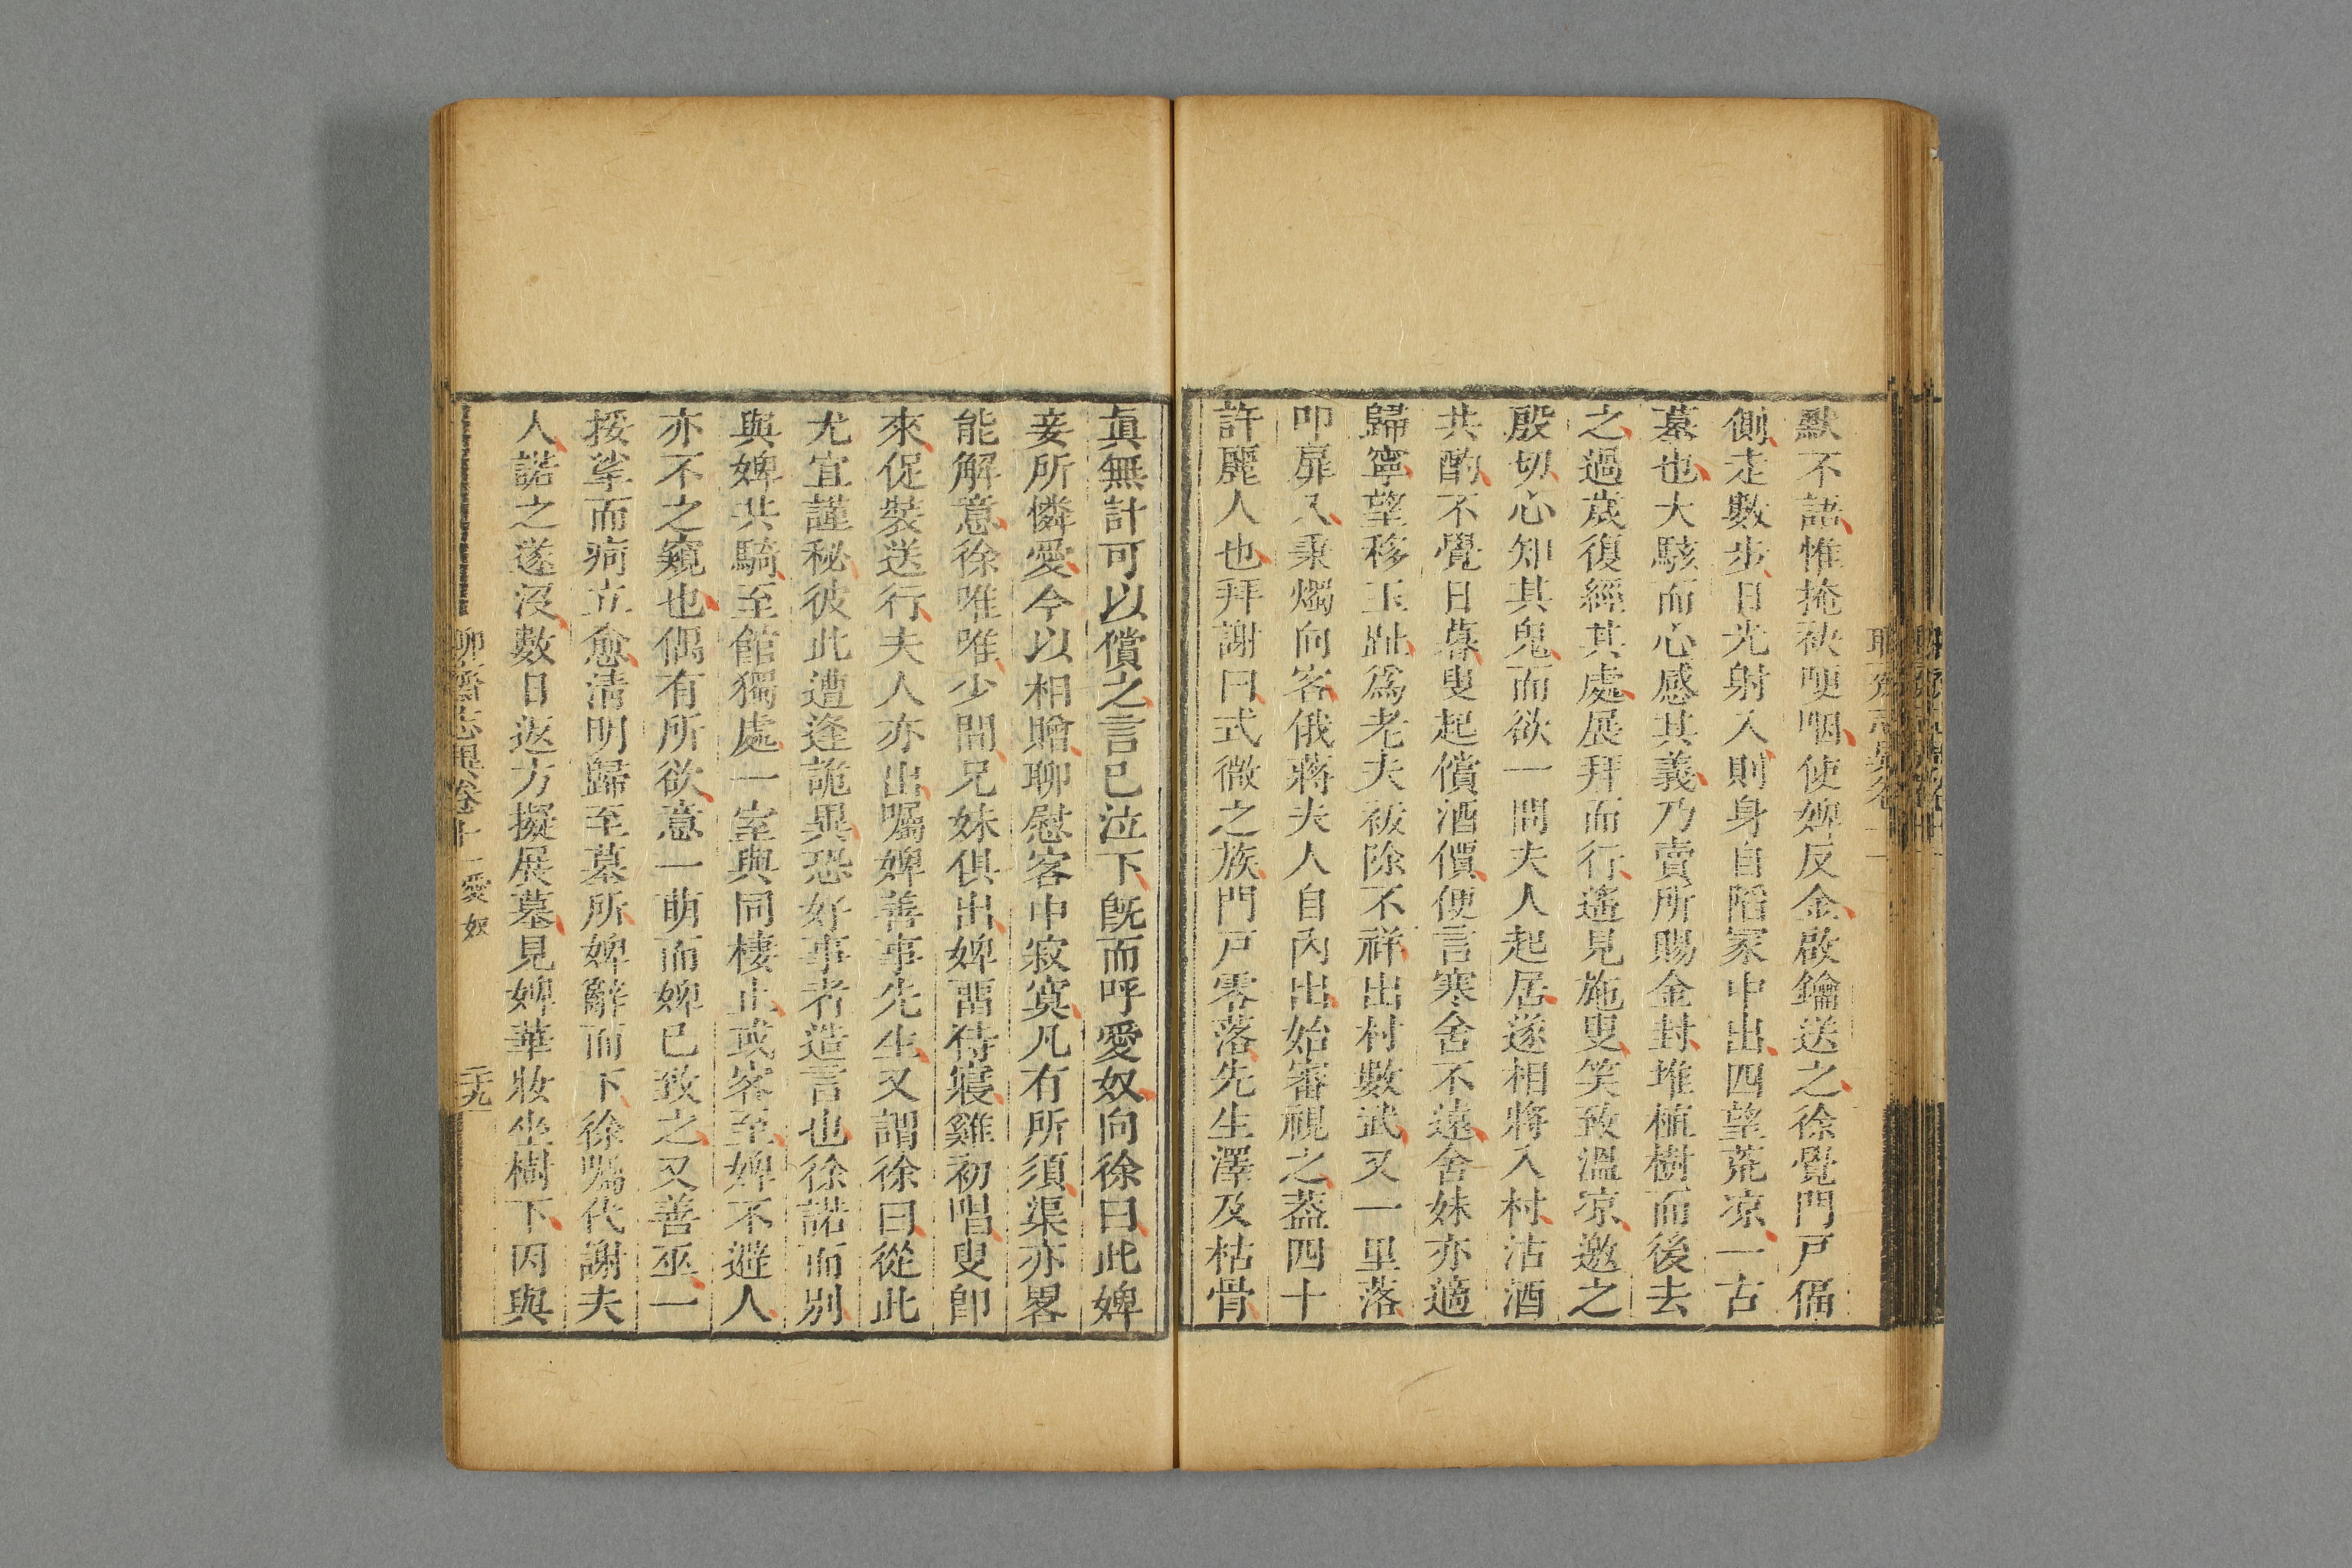 默不語惟掩袂哽咽使婢反金啟鑰送之徐覺門戸偪
側走數步日光射入則身自陷冢中出四望荒凉一古
墓也大駭而心感其義乃賣所賜金封堆植樹而後去
之過歲復經其處展拜而行遙見施叟笑致溫凉邀之
殷切心知其鬼而欲一問夫人起居遂相將入村沽酒
共酌不覺日暮叟起償酒價便言寒舍不遠舍妹亦適
歸寧望移玉趾爲老夫袚除不祥出村數武又一里落
叩扉入秉燭向客俄蔣夫人自內出始審視之蓋四十
許麗人也拜謝曰式微之族門戸零落先生澤及枯骨
眞無計可以償之言已泣下旣而呼愛奴向徐曰此婢
妾所憐愛今以相贈聊慰客中寂寞凡有所須渠亦畧
能解意徐唯唯少間兄妹俱出婢畱侍寢雞初唱叟卽
來促裝送行夫人亦出囑婢善事先生又謂徐曰從此
尤宜謹秘彼此遭逢詭異恐好事者造言也徐諾而別
與婢共騎至館獨處一室與同棲止或客至婢不避人
亦不之窺也偶有所欲意一萌而婢已致之又善巫一
挼挲而疴立愈淸明歸至墓所婢辭而下徐囑代謝夫
人諾之遂沒數日返方擬展墓見婢華妝坐樹下因與
聊齋志異卷十一 愛奴 二十九